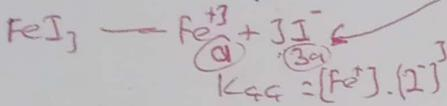 FeI₃ — Fe⁺³ + 3I⁻
a 3a
Kçç = [Fe⁺]·[I⁻]³